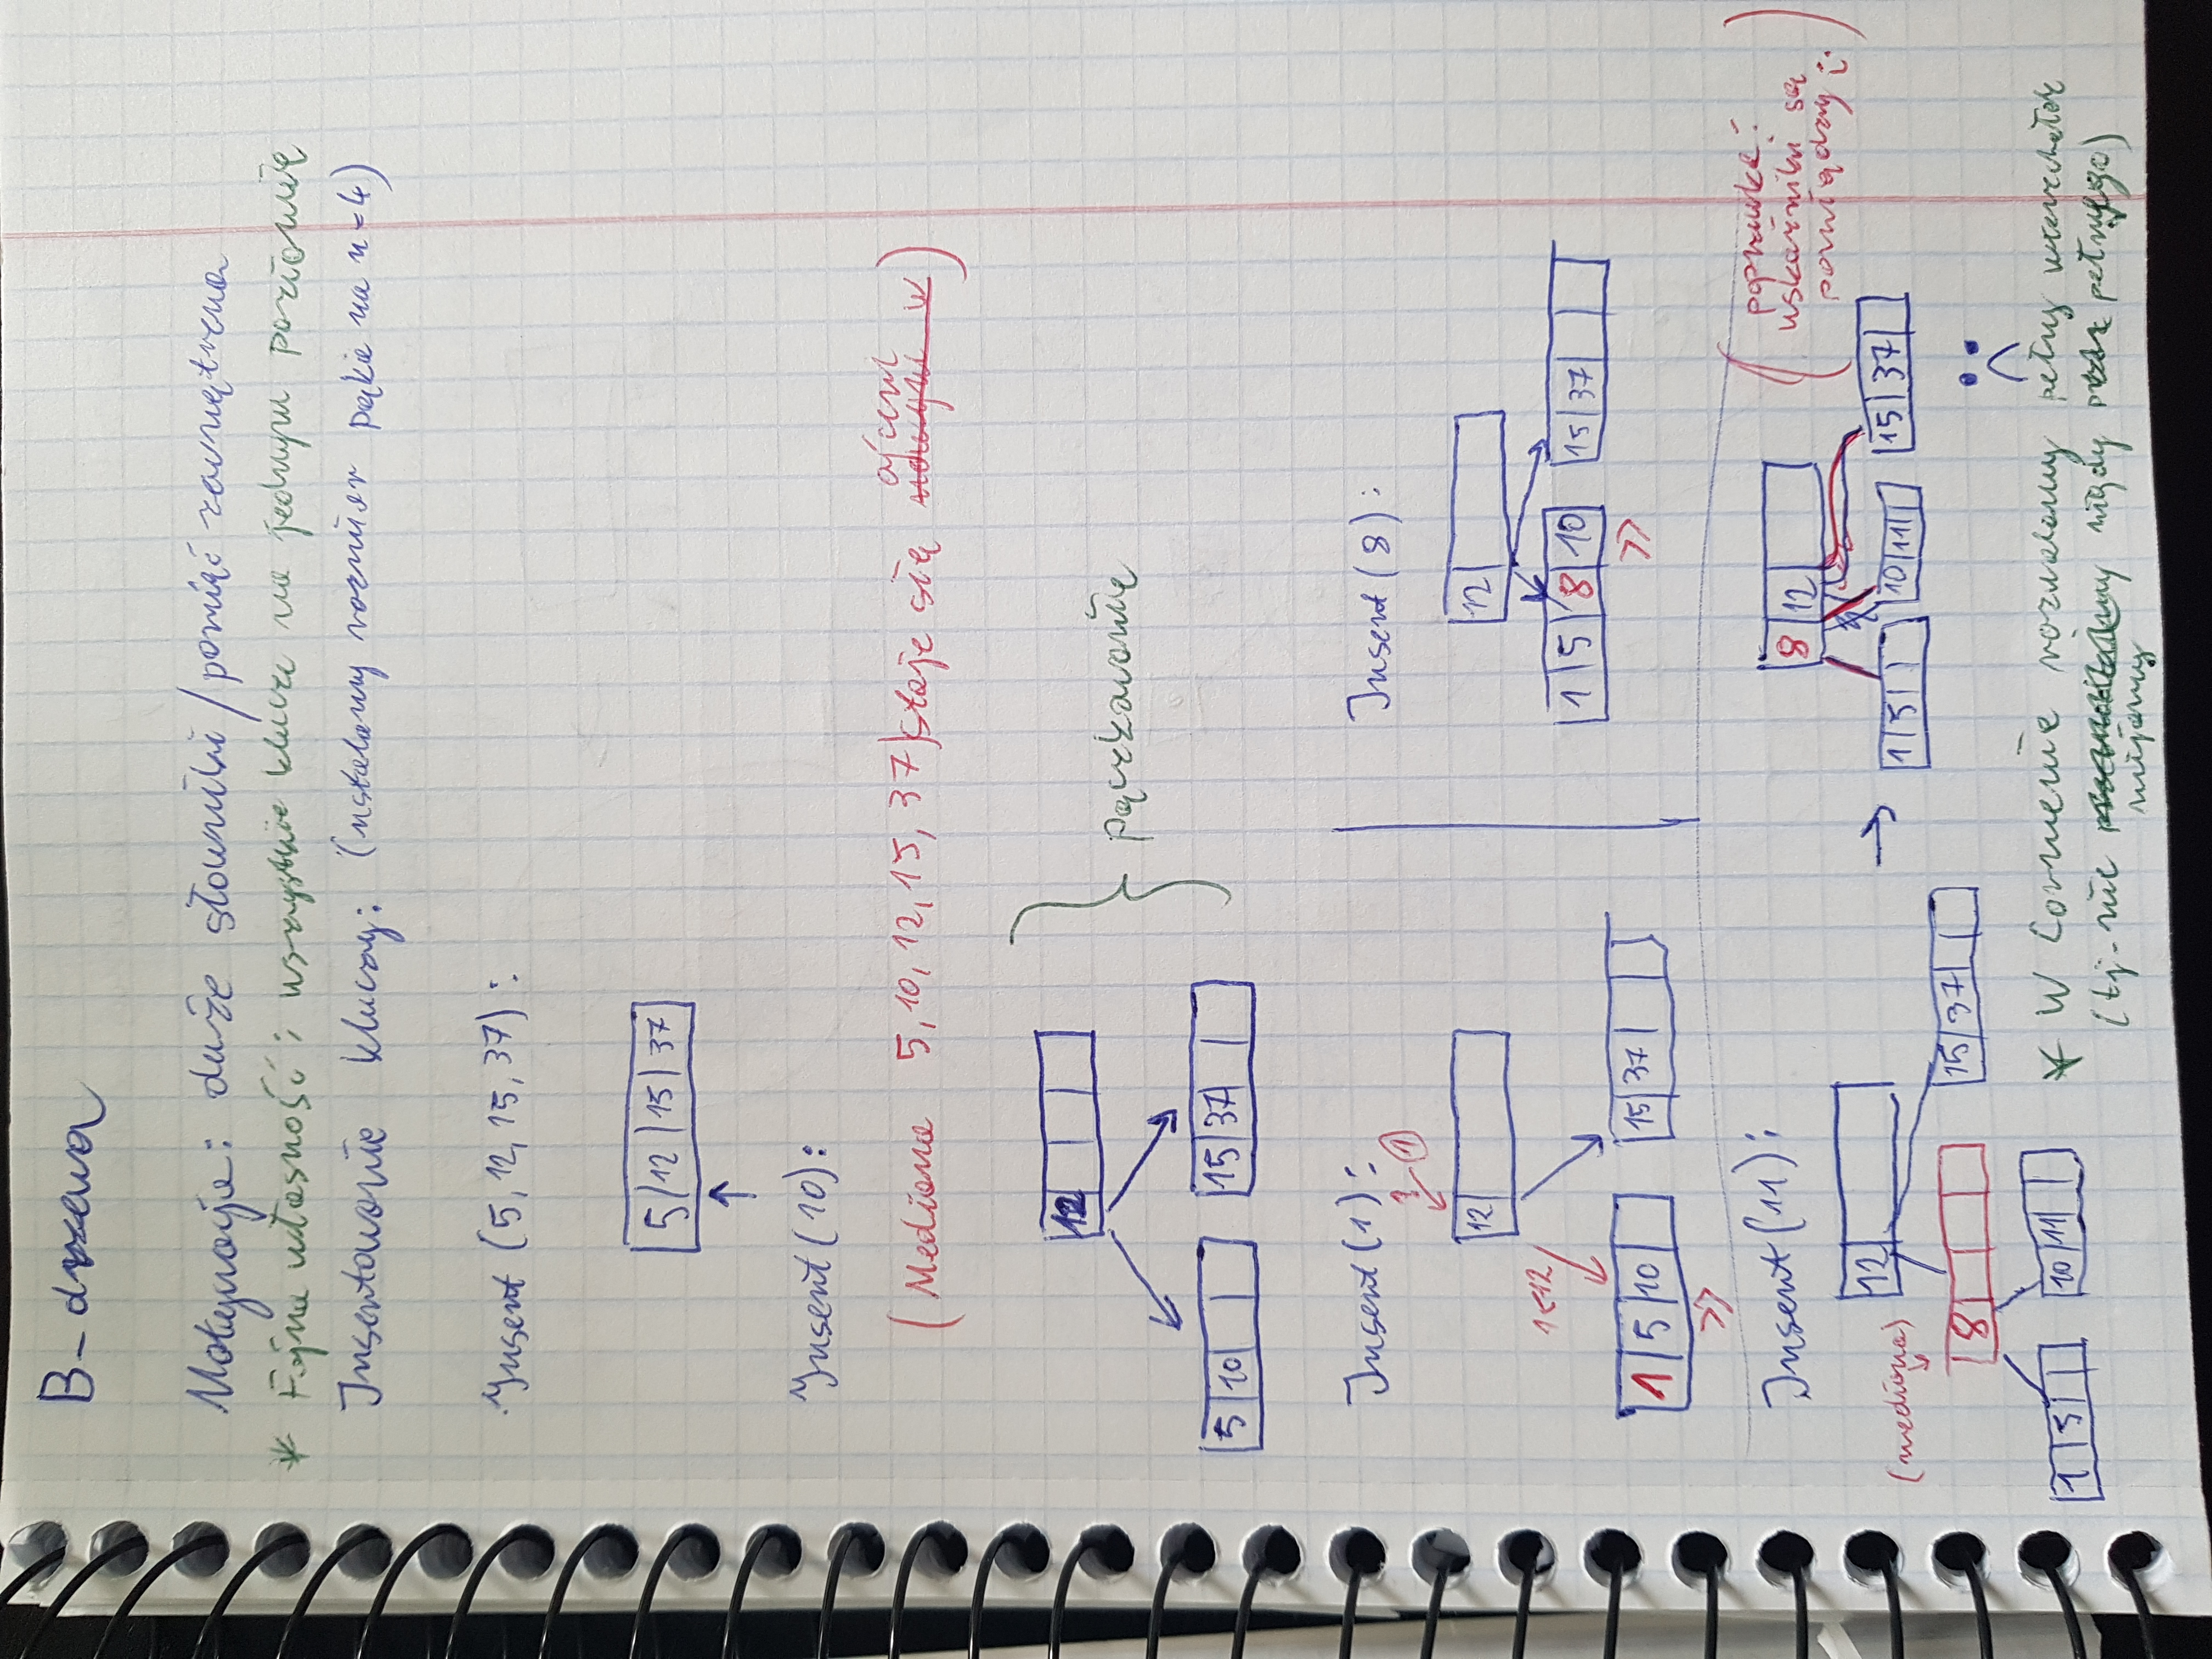 B-drzewa
Motywacja: duże słowniki / pamięć zewnętrzna
* Fajna własność: wszystkie klucze na jednym poziomie
Insertowanie kluczy: (ustalamy rozmiar pęku na n=4)
Insert (5, 12, 15, 37):
5 | 12 | 15 | 37
Insert (10):
(Mediana 5, 10, 12, 15, 37 staje się ojcem)
12
5 | 10
15 | 37
pączkowanie
Insert (1):
1
1<12
12
1 | 5 | 10
15 | 37
Insert (8):
12
1 | 5 | 8 | 10
15 | 37
Insert (11):
(mediana)
12
8
1 | 5
10 | 11
15 | 37
→
8 | 12
1 | 5
10 | 11
15 | 37
(poprawka:
wskaźniki są
pomiędzy :)
:(
* W Cormenie rozważamy pełny wierzchołek
(tj. nie mijamy nigdy pełnego)